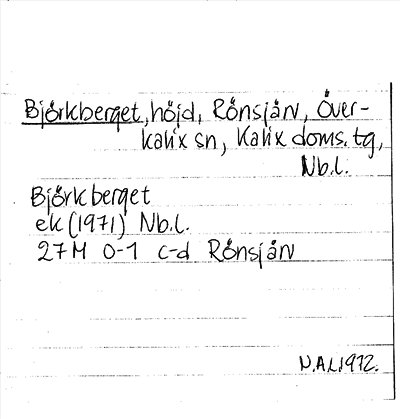 Björkberget, höjd, Rönsjärv, Över-
kalix sn, Kalix doms. tg,
Nb.l.
Björkberget
ek (1971) Nb.l.
27M 0-1 c-d Rönsjärv
N.A.L. 1972.